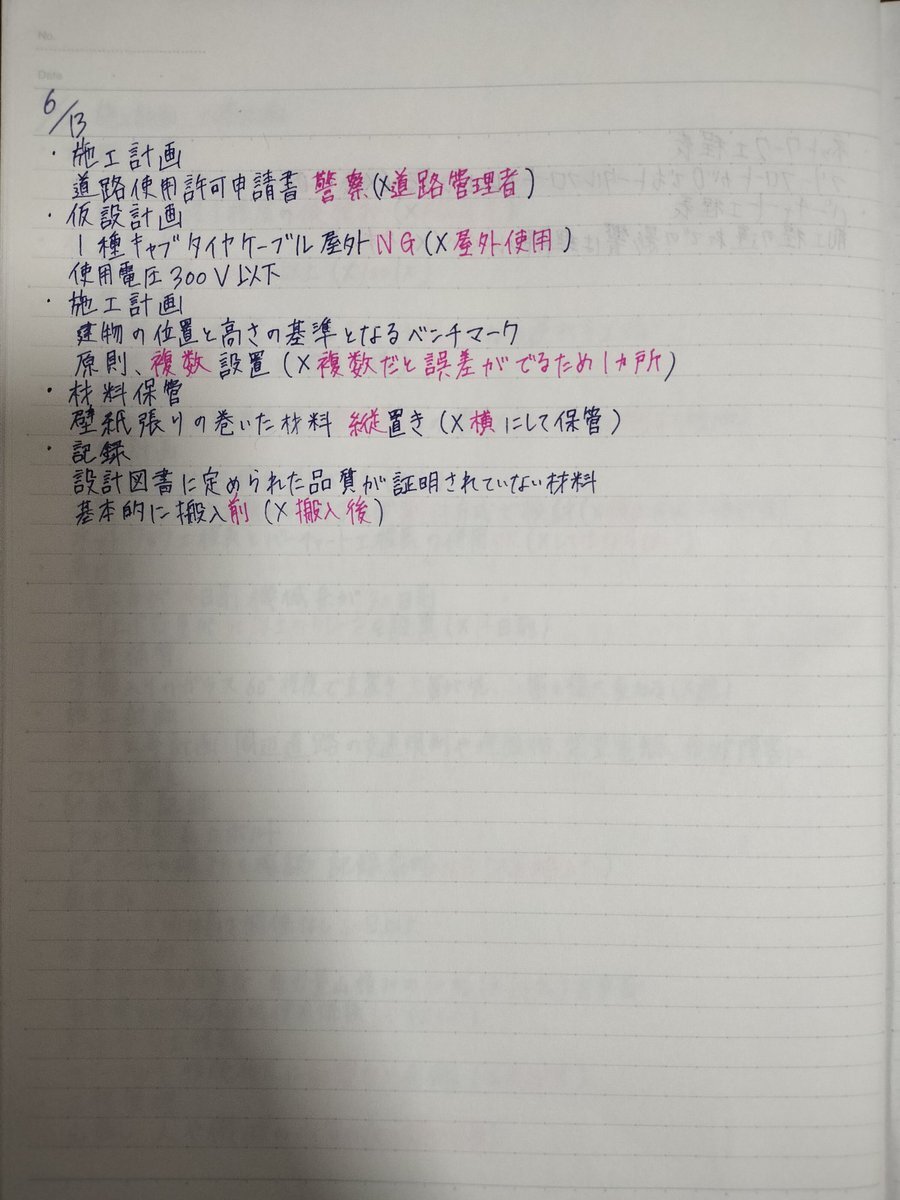 No.
Date
6/13
・施工計画
道路使用許可申請書 警察(×道路管理者)
・仮設計画
1種キャブタイヤケーブル屋外NG(×屋外使用)
使用電圧300V以下
・施工計画
建物の位置と高さの基準となるベンチマーク
原則、複数設置(×複数だと誤差がでるため1カ所)
・材料保管
壁紙張りの巻いた材料 縦置き(×横にして保管)
・記録
設計図書に定められた品質が証明されていない材料
基本的に搬入前(×搬入後)